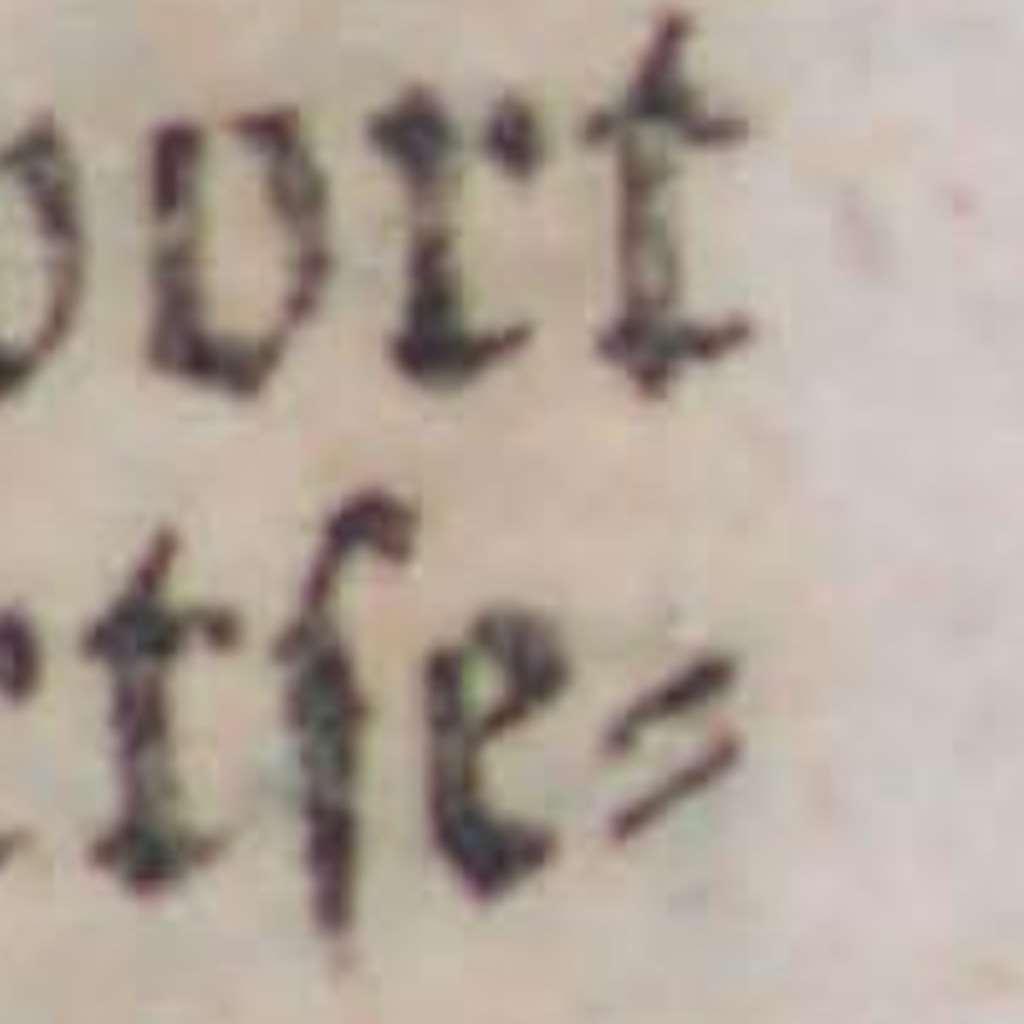 ort
tſe=